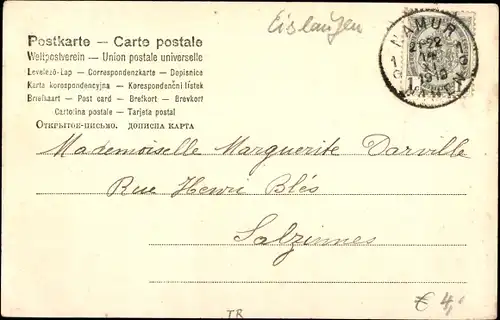 Eislaufen
Postkarte — Carte postale
Weltpostverein — Union postale universelle
Levelező-Lap — Correspondenzkarte — Dopisnice
Karta korespondencyjna — Korespondenční lístek
Briefkaart — Post card — Brefkort — Brevkort
Cartolina postale — Tarjeta postal
Открытое письмо. дописна карта
NAMUR
1910
NAMEN
Mademoiselle Marguerite Darville
Rue Henri Blès
Salzinnes
TR
€ 4,